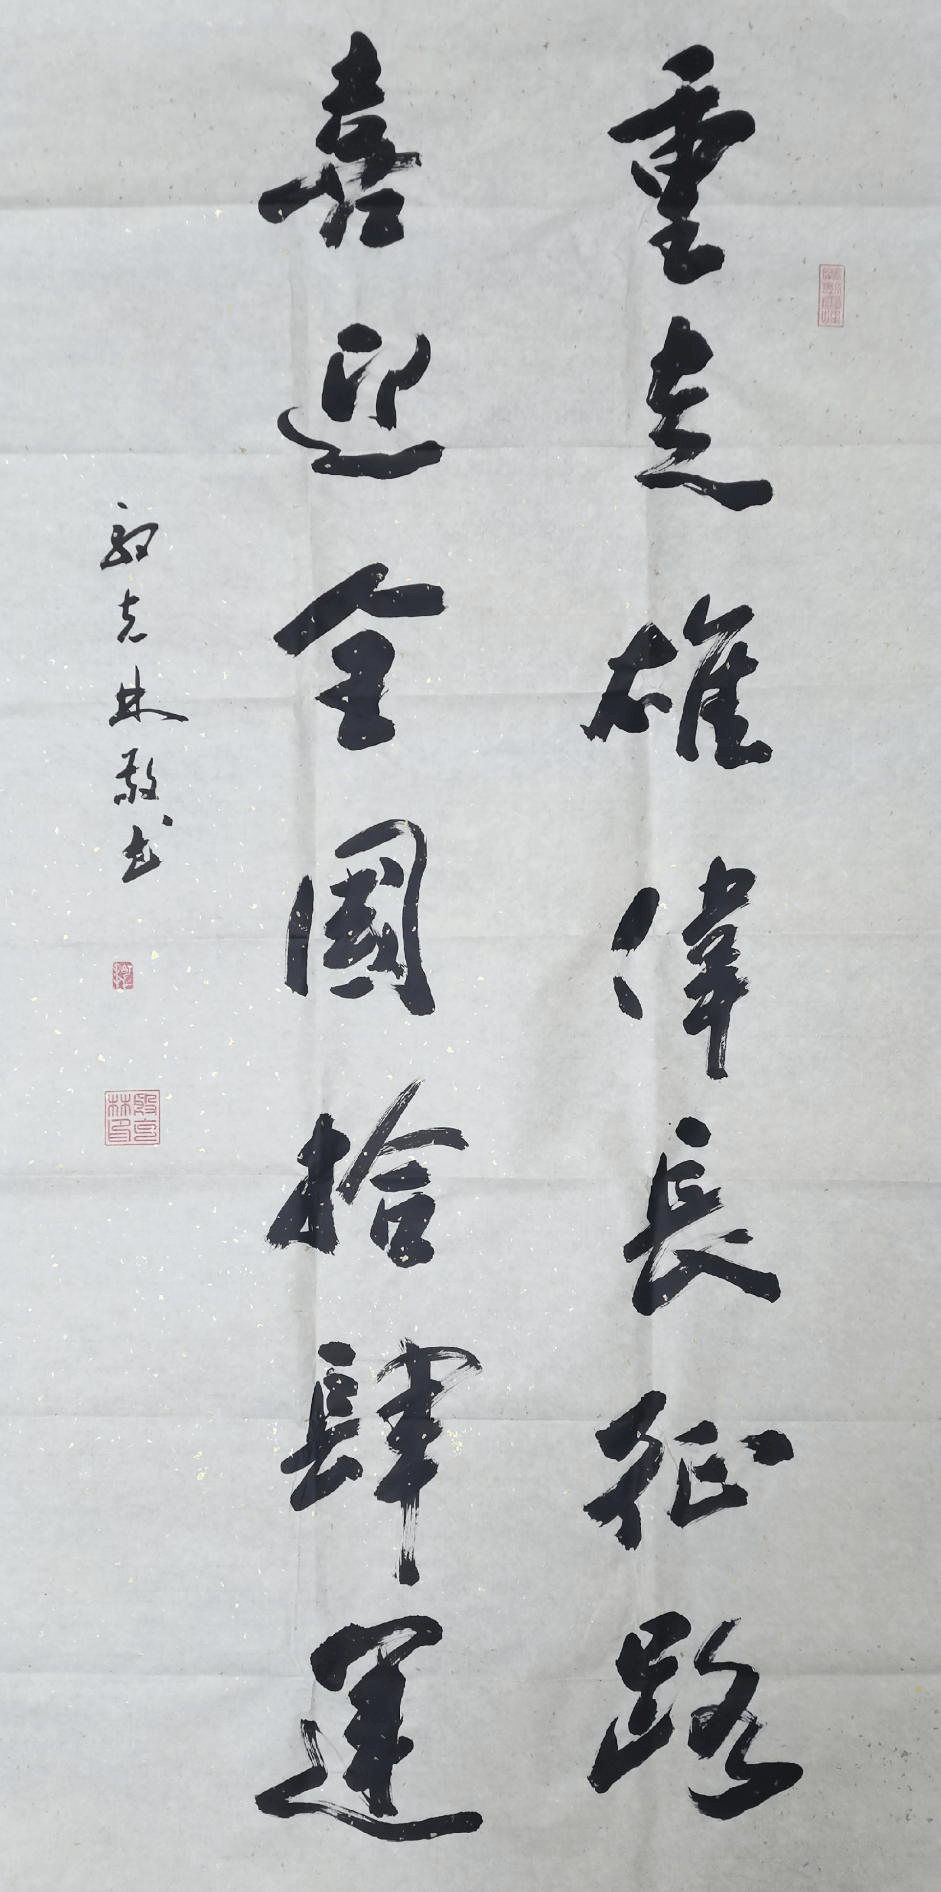 重走雄偉長征路
喜迎全國拾肆運
殷克林敬书